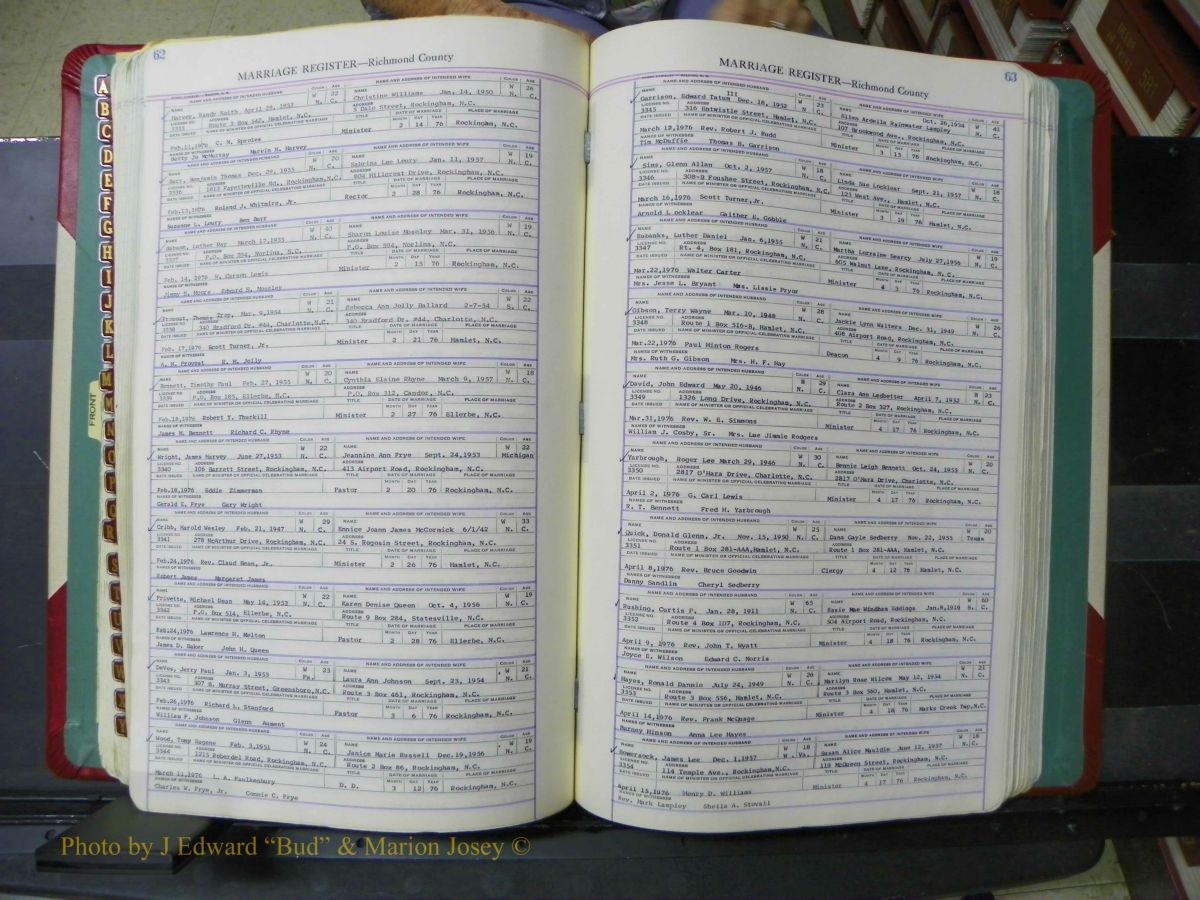 62
MARRIAGE REGISTER—Richmond County
NAME AND ADDRESS OF INTENDED HUSBAND COLOR AGE NAME AND ADDRESS OF INTENDED WIFE COLOR AGE
Harvey, Randy Keith April 29, 1953 W 22 Christine Williams Jan. 14, 1950 W 26
3335 Route 3 Box 542, Hamlet, N.C. N. C. 5 Dale Street, Rockingham, N.C. N. C.
DATE ISSUED NAME OF MINISTER OR OFFICIAL CELEBRATING MARRIAGE TITLE DATE OF MARRIAGE PLACE OF MARRIAGE
Feb.11,1976 C. N. Sproles Minister 2 14 76 Rockingham, N.C.
NAMES OF WITNESSES
Betty Jo McMurray Marvin H. Harvey
Benjamin Thomas Dec. 29, 1955 W 20 Sabrina Lee Loury Jan. 11, 1957 W 19
3336 1813 Fayetteville Rd., Rockingham, N.C. 804 Hillcrest Drive, Rockingham, N.C. N. C.
Feb.13,1976 Roland J. Whitmire, Jr. Rector 2 28 76 Rockingham, N.C.
Suzanne L. Loury Ben Burr
Luther Ray March 17,1935 W 40 Sharon Louise Moseley Mar. 31, 1956 W 19
3337 P.O. Box 394, Norlina, N.C. N. C. P.O. Box 394, Norlina, N.C. N. C.
Feb. 14, 1976 H. Carson Lewis Minister 2 15 76 Rockingham, N.C.
Jimmy H. Moore Edward H. Moseley
Provost, Thomas Troy, Mar. 9,1954 W 21 Rebecca Ann Jolly Ballard 2-7-54 W 22
3338 340 Bradford Dr. #44, Charlotte, N.C. N. C. 340 Bradford Dr. #44, Charlotte, N.C. S. C.
Feb. 17,1976 Scott Turner, Jr. Minister 2 21 76 Hamlet, N.C.
A. H. Provost R. H. Jolly
Bennett, Timothy Paul Feb. 27, 1955 W 20 Cynthia Elaine Rhyne March 9, 1957 W 18
3339 P.O. Box 185, Ellerbe, N.C. N. C. P.O. Box 312, Candor, N.C. N. C.
Feb.18,1976 Robert Y. Thurkill Minister 2 27 76 Ellerbe, N.C.
James M. Bennett Richard C. Rhyne
Wright, James Harvey June 27,1953 W 22 Jeannine Ann Frye Sept. 24,1953 W 22
3340 106 Barrett Street, Rockingham, N.C. N. C. 413 Airport Road, Rockingham, N.C. Michigan
Feb.18,1976 Eddie Zimmerman Pastor 2 20 76 Rockingham, N.C.
Gerald E. Frye Gary Wright
Cribb, Harold Wesley Feb. 21, 1947 W 29 Ennice Joann James McCormick 6/1/42 W 33
3341 278 McArthur Drive, Rockingham, N.C. N. C. 24 S. Rogosin Street, Rockingham, N.C. N. C.
Feb.24,1976 Rev. Claud Bean, Jr. Minister 2 26 76 Hamlet, N.C.
Robert James Margaret James
Privette, Michael Dean May 14, 1953 W 22 Karen Denise Queen Oct. 4, 1956 W 19
3342 P.O. Box 514, Ellerbe, N.C. N. C. Route 9 Box 284, Statesville, N.C. N. C.
Feb.24,1976 Lawrence H. Melton Pastor 2 28 76 Ellerbe, N.C.
James D. Baker John H. Queen
DeVos, Jerry Paul Jan. 3, 1953 W 23 Laura Ann Johnson Sept. 23, 1954 W 21
3343 307 B. Murray Street, Greensboro, N.C. Pa. Route 3 Box 461, Rockingham, N.C. N. C.
Feb.26,1976 Richard L. Stanford Pastor 3 6 76 Rockingham, N.C.
William F. Johnson Glenn Aument
Wood, Tony Eugene Feb. 3,1951 W 24 Janice Marie Russell Dec.19,1956 W 19
3344 1215 Roberdel Road, Rockingham, N.C. N. C. Route 2 Box 86, Rockingham, N.C. N. C.
March 11,1976 L. A. Faulkenbury D. D. 3 12 76 Rockingham, N.C.
Charles W. Frye, Jr. Connie C. Frye
63
MARRIAGE REGISTER—Richmond County
Garrison, Edward Tatum III Dec. 18, 1952 W 23 Ellen Ardelia Rainwater Lampley Oct. 26,1934 W 41
3345 316 Entwistle Street, Hamlet, N.C. N. C. 107 Brookwood Ave., Rockingham, N.C. N. C.
March 12,1976 Rev. Robert J. Rudd Minister 3 13 76 Rockingham, N.C.
Tim McDuffie Thomas H. Garrison
Sims, Glenn Allan Oct. 2, 1957 W 18 Linda Sue Locklear Sept. 21, 1957 W 18
3346 308-B Foushee Street, Rockingham, N.C. N. C. 123 West Ave., Hamlet, N.C. N. C.
March 16,1976 Scott Turner,Jr. Minister 3 19 76 Hamlet, N.C.
Arnold Locklear Gaither E. Gobble
Eubanks, Luther Daniel Jan. 6,1955 W 21 Martha Lorraine Searcy July 27,1956 W 19
3347 Rt. 4, Box 181, Rockingham, N.C. N. C. 605 Walnut Lane, Rockingham, N.C. N. C.
Mar.22,1976 Walter Carter Minister 4 3 76 Rockingham, N.C.
Mrs. Jesse L. Bryant Mrs. Lissie Pryor
Gibson, Terry Wayne Mar. 10, 1948 W 28 Jackie Lynn Walters Dec. 31, 1949 W 26
3348 Route 1 Box 516-B, Hamlet, N.C. N. C. 406 Airport Road, Rockingham, N.C. N. C.
Mar.22,1976 Paul Hinton Rogers Deacon 4 9 76 Rockingham, N.C.
Mrs. Ruth G. Gibson Mrs. H. F. Hay
David, John Edward May 20, 1946 B 29 Clara Ann Ledbetter April 7, 1952 B 23
3349 1326 Long Drive, Rockingham, N.C. N. C. Route 2 Box 327, Rockingham, N.C. N. C.
Mar.31,1976 Rev. W. E. Simmons Minister 4 11 76 Rockingham, N.C.
William J. Cosby, Sr. Mrs. Lue Jimmie Rodgers
Yarbrough, Roger Lee March 29, 1946 W 30 Bennie Leigh Bennett Oct. 24, 1955 W 20
3350 2817 O'Hara Drive, Charlotte, N.C. N. C. 2817 O'Hara Drive, Charlotte, N.C. N. C.
April 2, 1976 G. Carl Lewis Minister 4 17 76 Rockingham, N.C.
R. T. Bennett Fred H. Yarbrough
Quick, Donald Glenn, Jr. Nov. 15, 1950 W 25 Dana Gayle Sedberry Nov. 22, 1955 W 20
3351 Route 1 Box 281-AAA, Hamlet, N.C. N. C. Route 1 Box 281-AAA, Hamlet, N.C. Texas
April 8,1976 Rev. Bruce Goodwin Clergy 4 12 76 Hamlet, N.C.
Danny Sandlin Cheryl Sedberry
Rushing, Curtis P. Jan. 28, 1911 W 65 Exxie Mae Windham Eddings Jan.8,1916 W 60
3352 Route 4 Box 107, Rockingham, N.C. N. C. 504 Airport Road, Rockingham, N.C. S. C.
April 9, 1976 Rev. John T. Wyatt Minister 4 18 76 Rockingham, N.C.
Joyce E. Wilson Edward C. Norris
Hayes, Ronald Dannie July 24, 1949 W 26 Marilyn Rose Wilcox May 12, 1954 W 21
3353 Route 3 Box 556, Hamlet, N.C. N. C. Route 3 Box 560, Hamlet, N.C. N. C.
April 14,1976 Rev. Frank McQuage Minister 4 18 76 Marks Creek Twp,N.C.
Burney Hinson Anna Lee Hayes
James Lee Dec. 1,1957 W 18 Susan Alice Mauldin June 12, 1957 W 18
3354 114 Temple Ave., Rockingham, N.C. W. Va. 119 McQueen Street, Rockingham, N.C. N. C.
April 15,1976 Henry D. Williams Minister 4 17 76 Rockingham, N.C.
Rev. Mark Lampley Sheila A. Stovall
FRONT
A B C D E F G H I J K L M N O P Q R S
Photo by J Edward “Bud” & Marion Josey ©